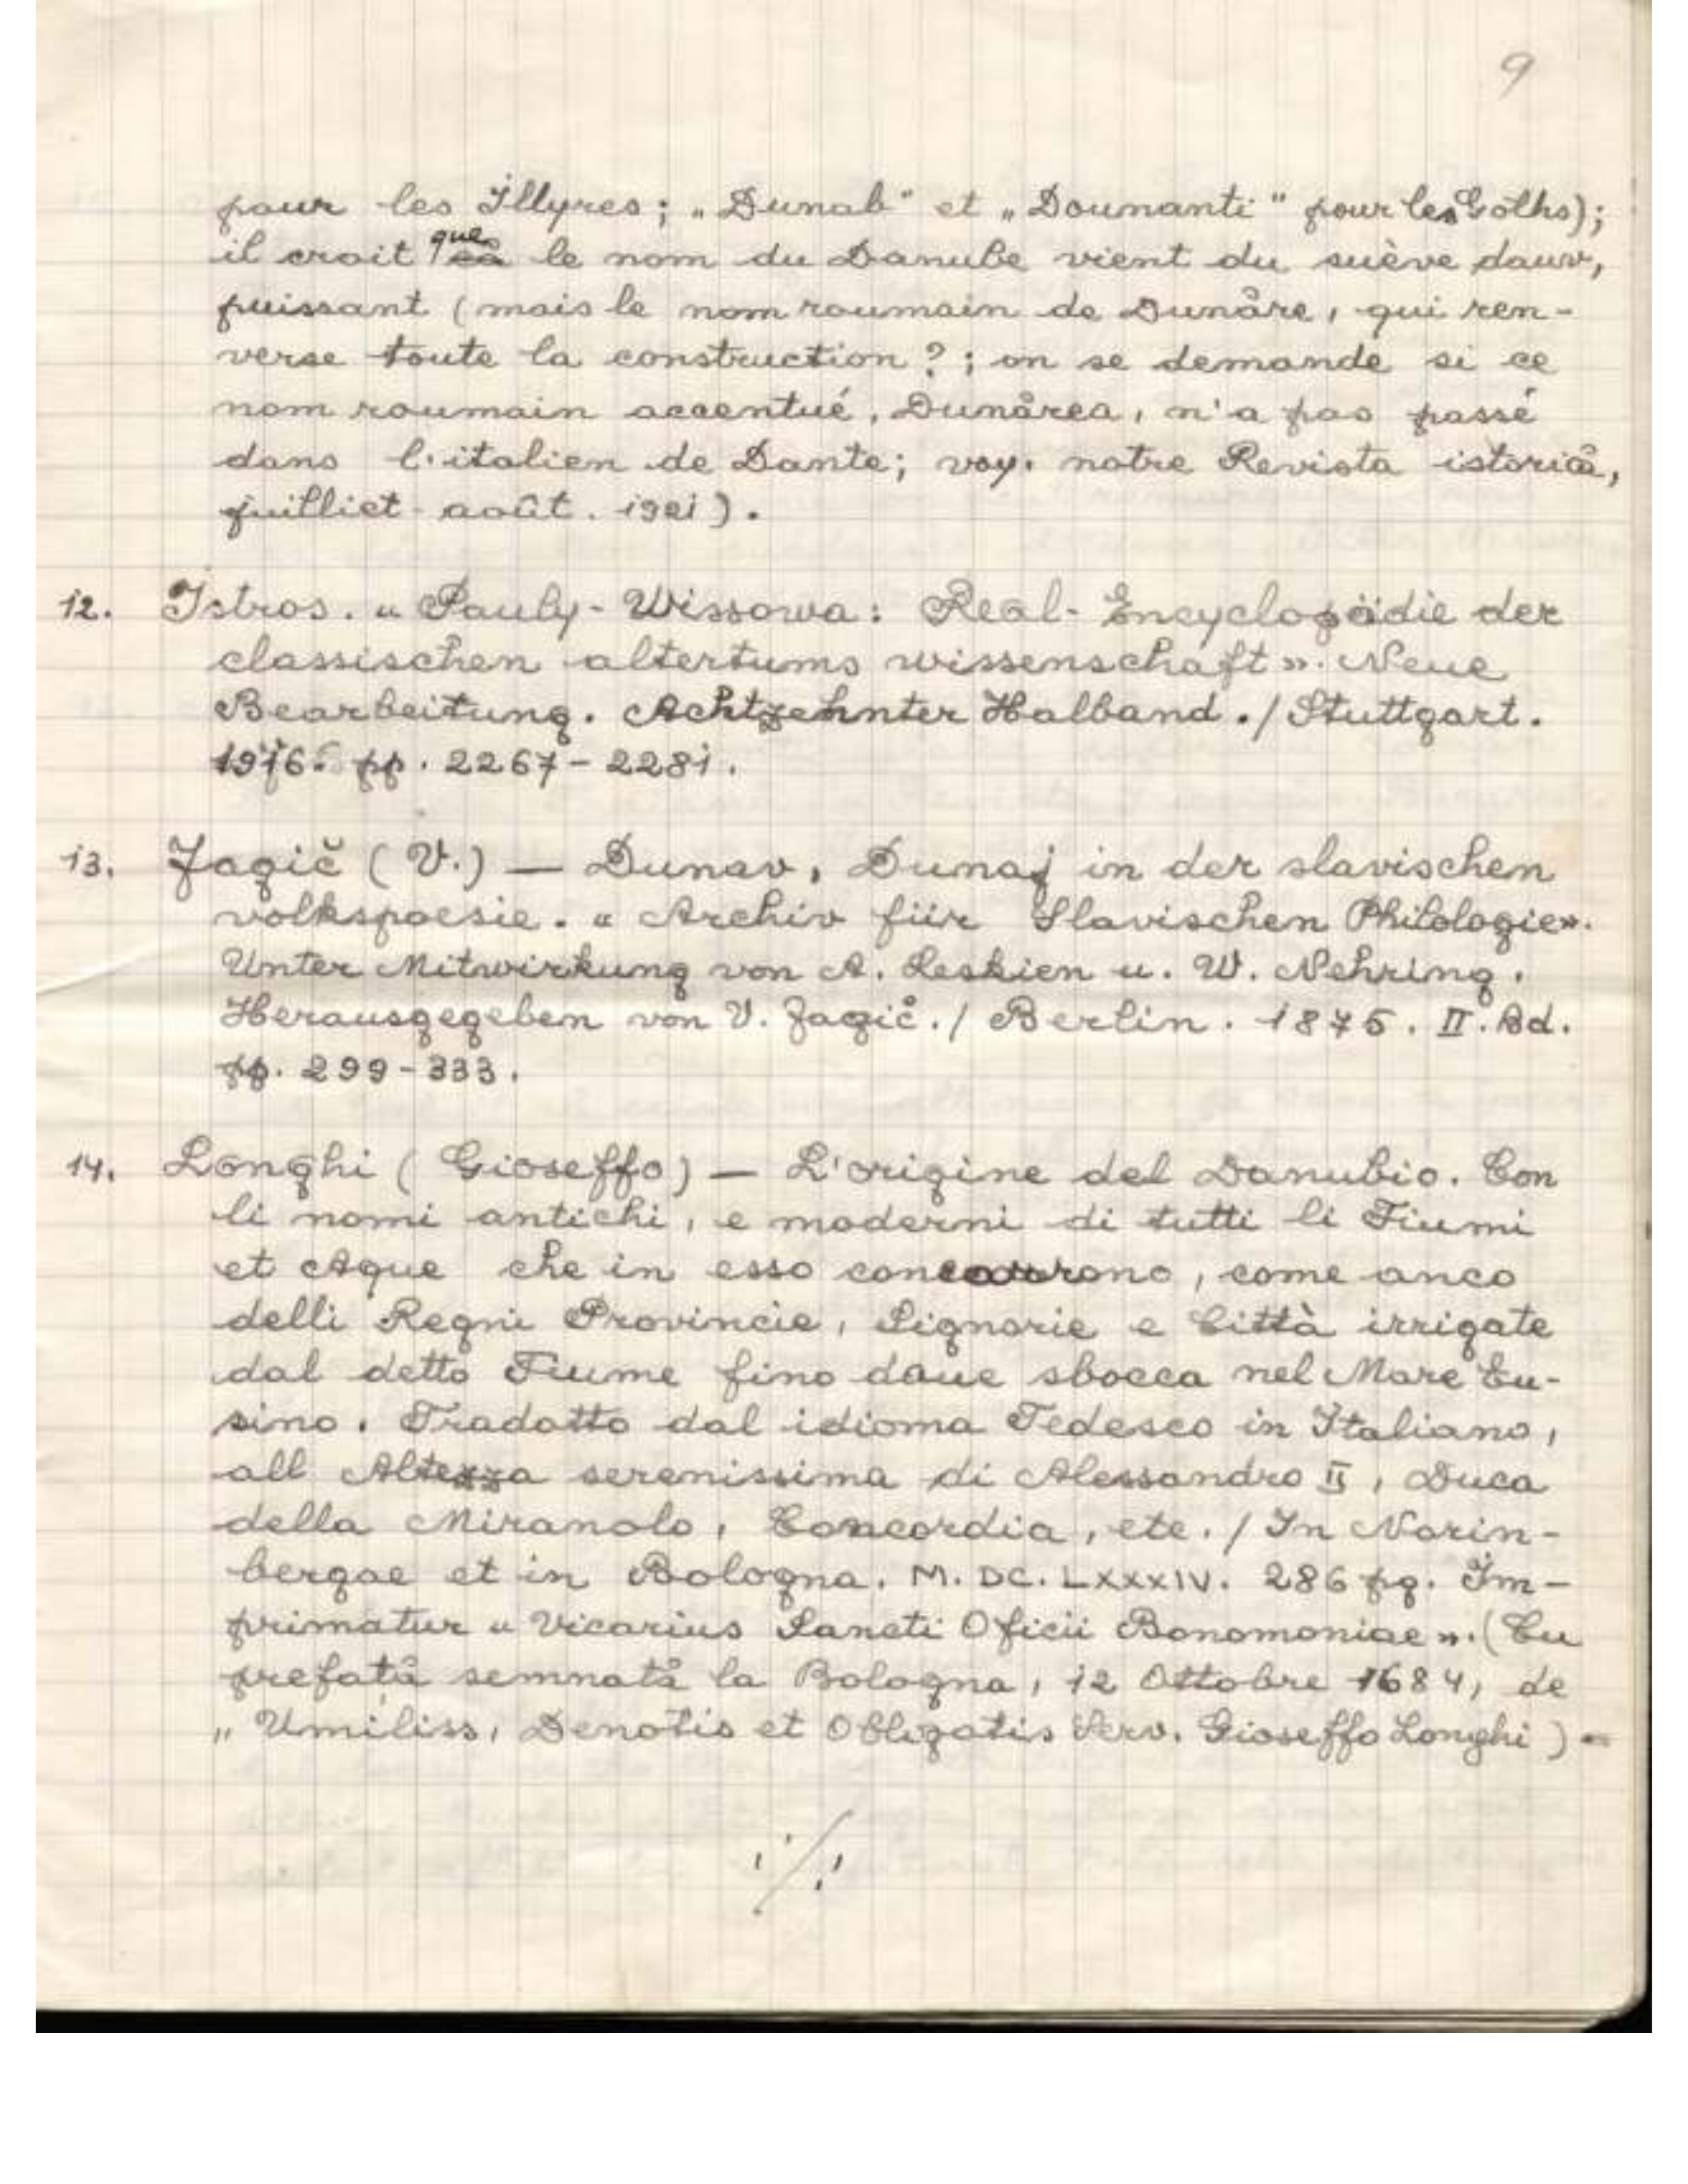 9
pour les Illyres; „Dunab" et „Doumanti" pour les Goths);
il croit que le nom du Danube vient du suève dauv,
puissant (mais le nom roumain de Dunăre, qui ren-
verse toute la construction?; on se demande si ce
nom roumain accentué, Dunărea, n'a pas passé
dans l'italien de Dante; voy. notre Revista istorică,
juilliet-août. 1921).
12. Istros. « Pauly-Wissowa: Real-Encyclopädie der
classischen altertums wissenschaft ». Neue
Bearbeitung. Achtzehnter Halband./Stuttgart.
1916. pp. 2267-2281.
13. Jagič (V.) — Dunav, Dunaj in der slavischen
volkspoesie. « Archiv für Slavischen Philologie».
Unter Mitwirkung von A. Leskien u. W. Nehring.
Herausgegeben von V. Jagič./ Berlin. 1875. II. Bd.
pp. 299-333.
14. Longhi (Gioseffo) — L'origine del Danubio. Con
li nomi antichi, e moderni di tutti li Fiumi
et Aque che in esso concorrono, come anco
delli Regni Provincie, Signorie e Città irrigate
dal detto Fiume fino doue sbocca nel Mare Eu-
sino. Tradotto dal idioma Tedesco in Italiano,
all Altezza serenissima di Alessandro II, Duca
della Miranolo, Concordia, etc. / In Norin-
bergae et in Bologna. M. DC. LXXXIV. 286 pg. Im-
primatur « Vicarius Sancti Oficii Bonomoniae ». (Cu
prefată semnată la Bologna, 12 Ottobre 1684, de
„Umiliss, Denotis et Obligatis Serv. Gioseffo Longhi) -